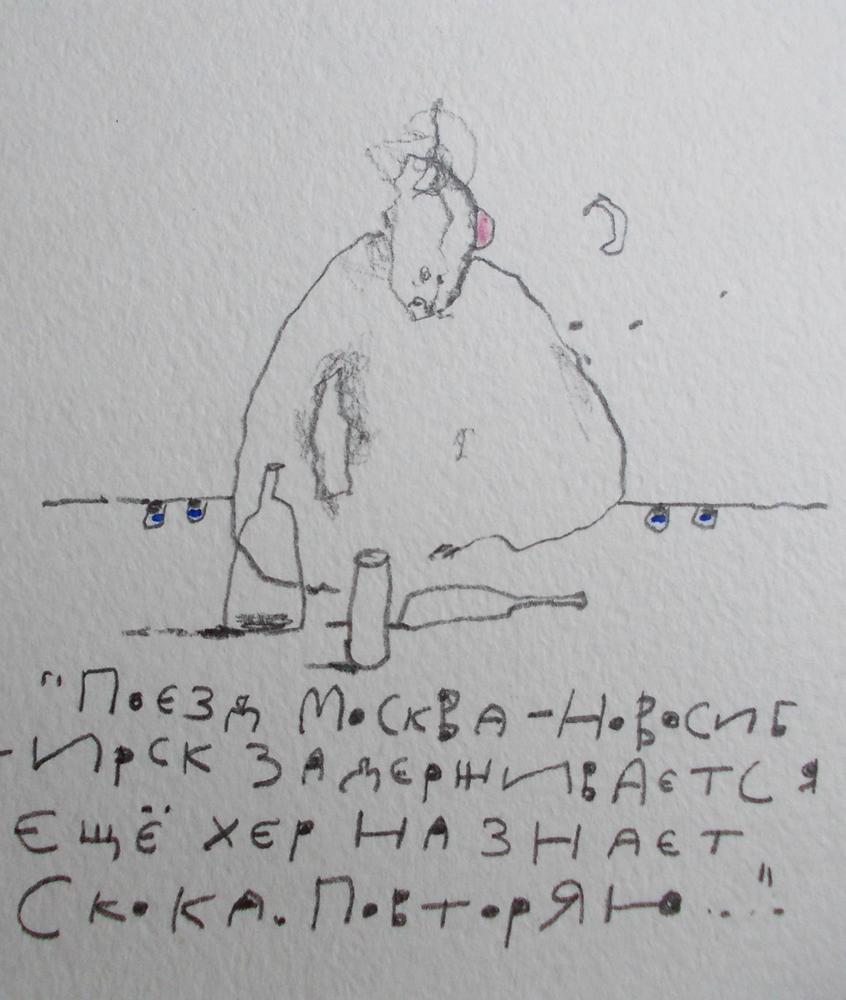 "Поезд Москва-Новосиб
-ирск задерживается
ещё хер на знает
скока. Повторяю..."